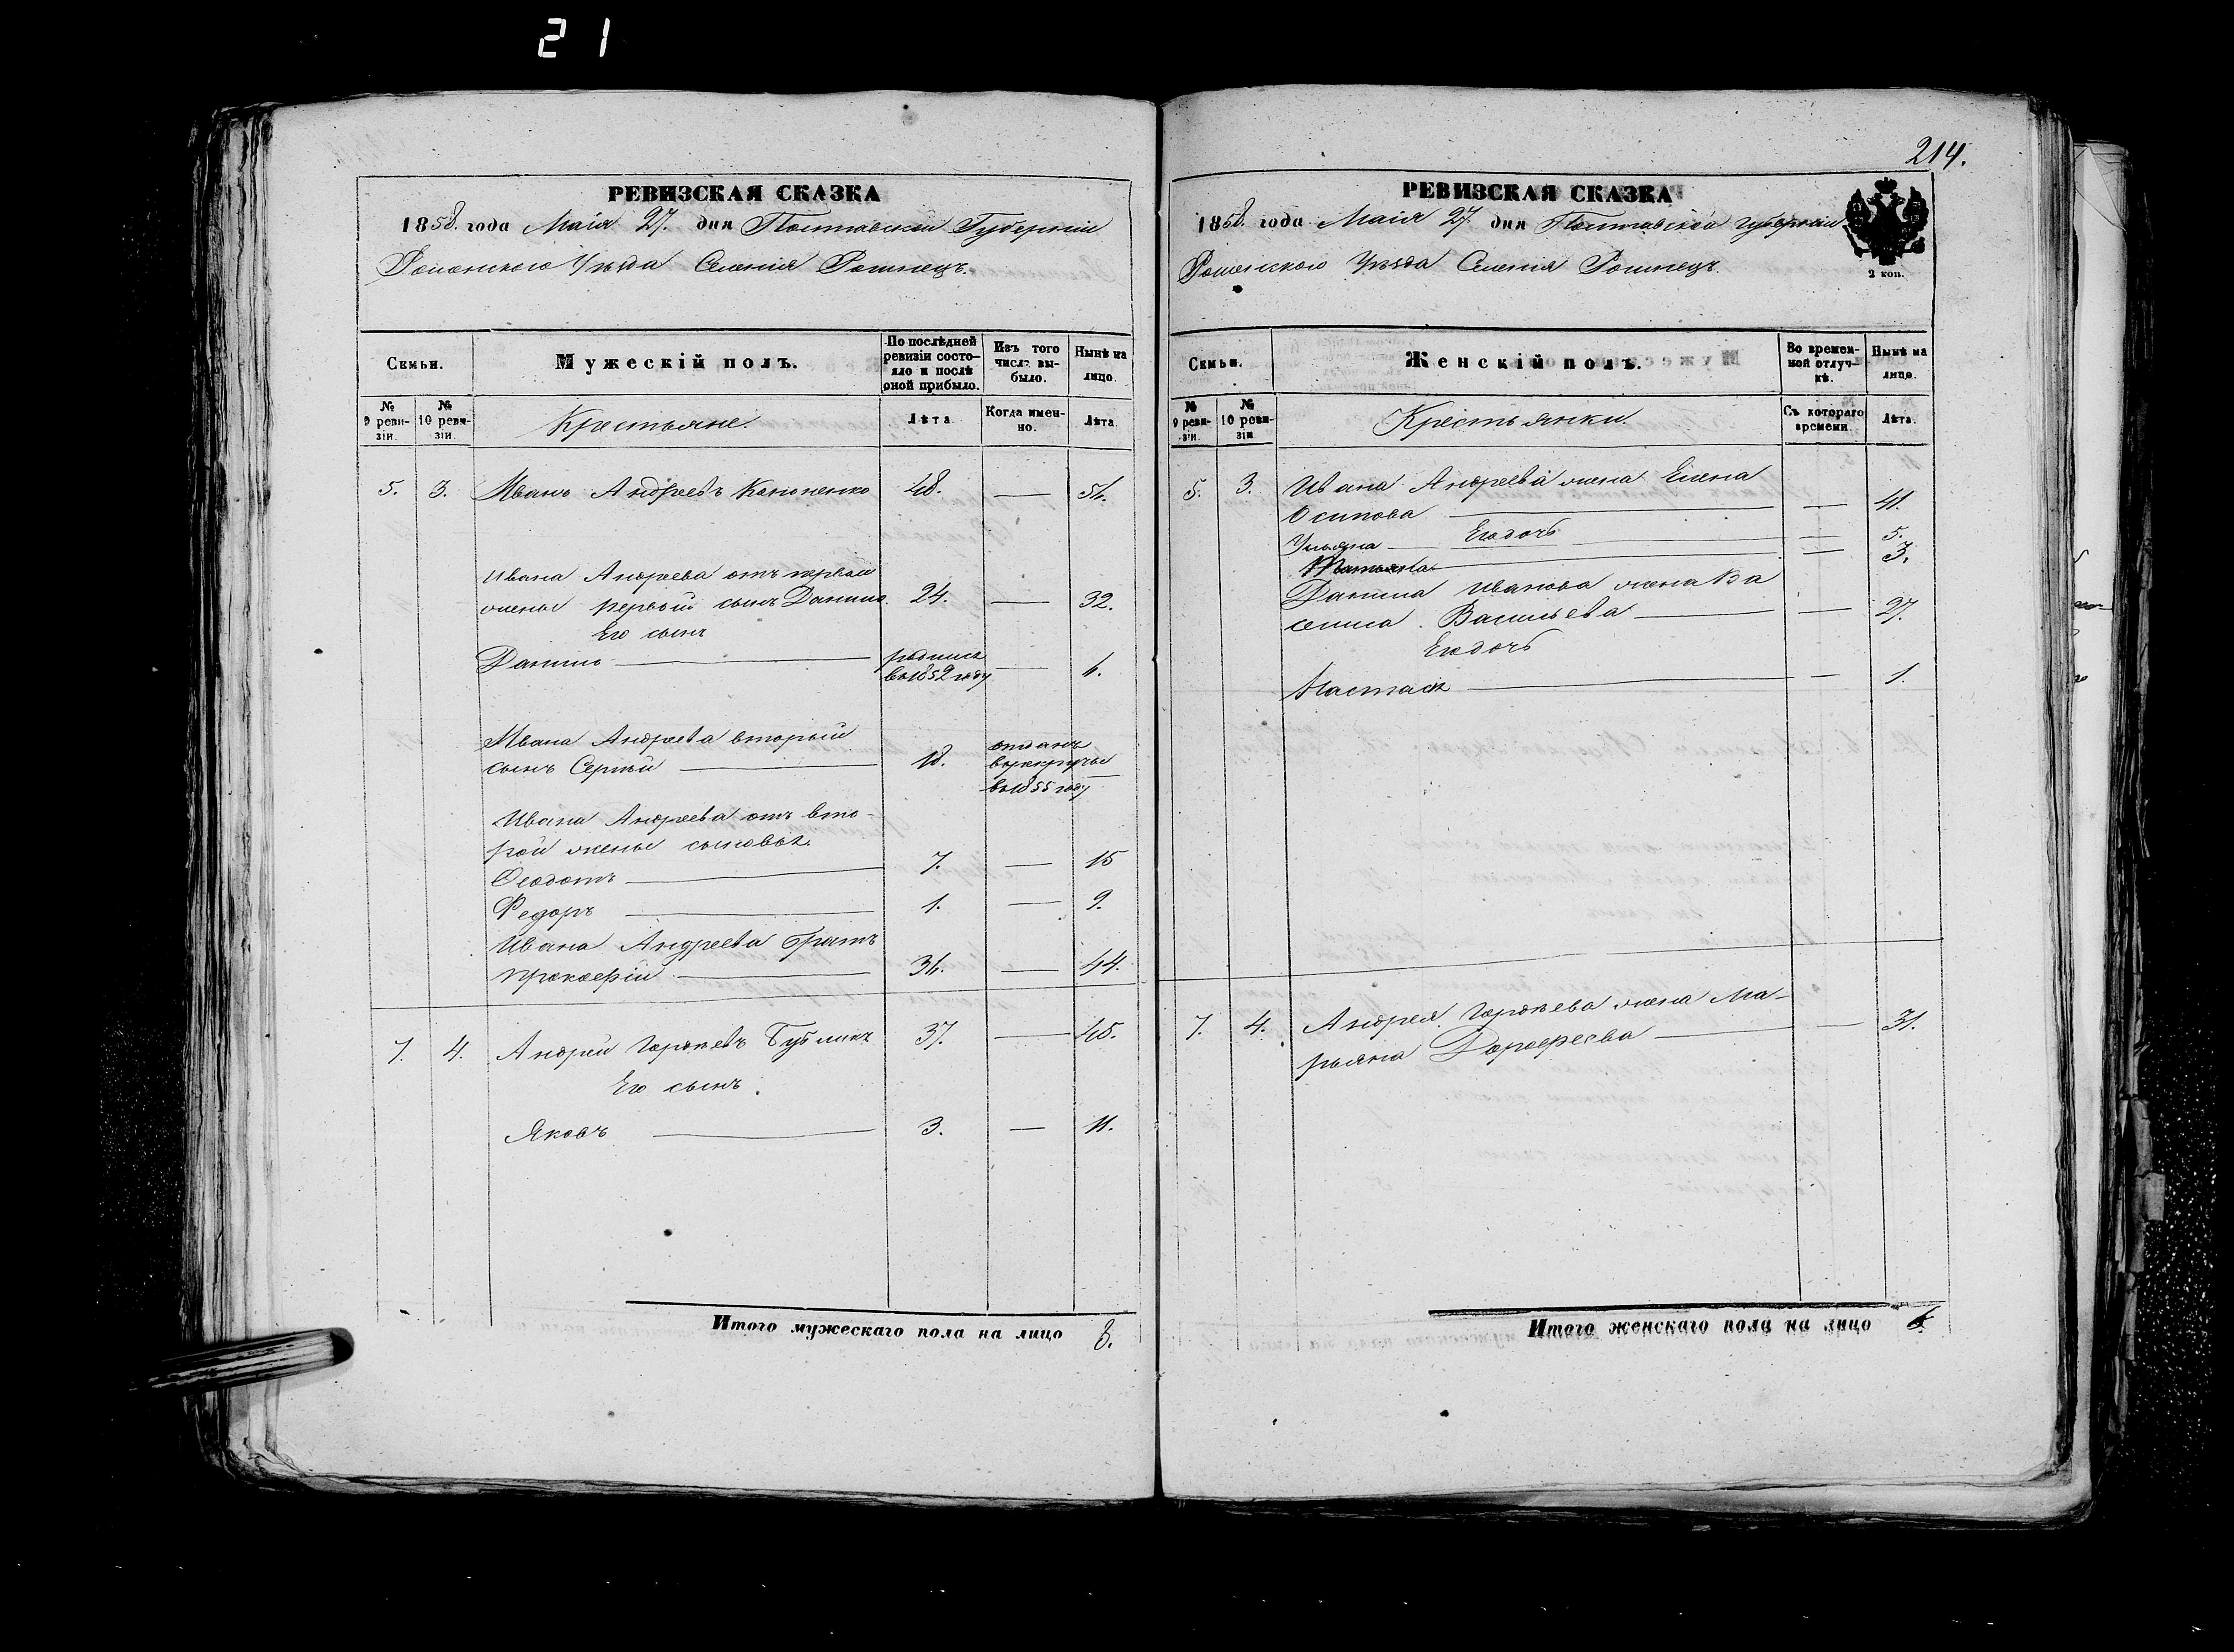 21
РЕВИЗСКАЯ СКАЗКА
1858. года Маія 27. дня Полтавской Губерніи
Роменскаго Уѣзда Селенія
Семьи.
Мужескій полъ.
По послѣдней ревизіи состояло и послѣ оной прибыло.
Изъ того числа выбыло.
Нынѣ на лицо.
№ 9 ревизіи.
№ 10 ревизіи
Крестьяне.
Лѣта.
Когда именно.
Лѣта.
5. 3. Иванъ Андреевъ Кононенко 48. — 56.
Ивана Андреева отъ первой
жены первый сынъ Данило. 24. — 32.
Его сынъ
Данило — родился
въ 1852 году — 6.
Ивана Андреева вторый
сынъ Сергѣй — 18. отданъ
въ рекруты
въ 1855 году
Ивана Андреева отъ вто-
рой жены сыновья.
Ѳеодотъ — 7. — 15
Федоръ — 1. — 9.
Ивана Андреева братъ
Прокофій — 36. — 44.
7. 4. Андрей Гордѣевъ Бубликъ 37. — 45.
Его сынъ.
Яковъ — 3. — 11.
Итого мужескаго пола на лицо 8.
214.
РЕВИЗСКАЯ СКАЗКА
1858. года Маія 27 дня Полтавской Губерніи
Роменскаго Уѣзда Селенія
2 коп.
Семьи.
Женскій полъ.
Во временной отлучкѣ.
Нынѣ на лицо.
№ 9 ревизіи.
№ 10 ревизіи
Крестьянки.
Съ котораго времени
Лѣта.
5. 3. Ивана Андреева жена Елена
Осипова — — 41.
Его дочь
Ульяна — — 5.
Татьяна — — 3.
Данила Иванова жена Ва
силиса Васильева — — 27.
Его дочь
Настася — — 1.
7. 4. Андрея Гордѣева жена Ма-
рьяна Дорофеева — — 31.
Итого женскаго пола на лицо 6.